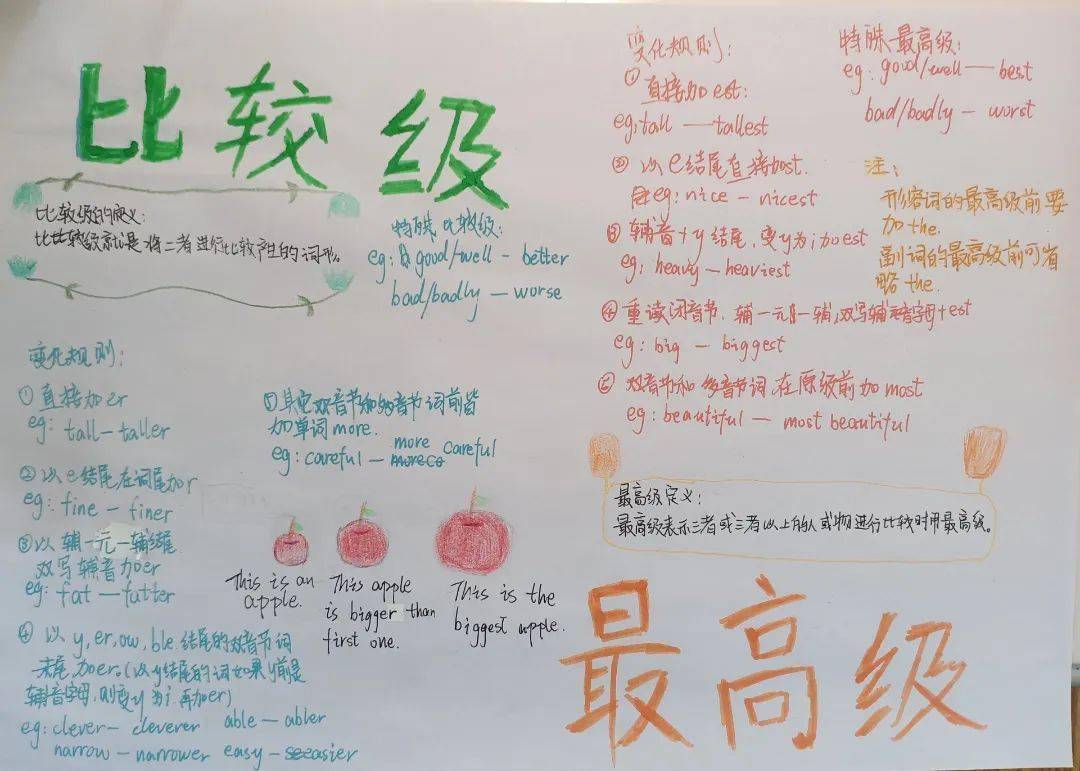 比较级
比较级的定义:
比比较级就是将二者进行比较产生的词形。
特殊比较级:
eg: good/well - better
bad/badly - worse
变化规则:
①直接加er
eg: tall-taller
②以e结尾在词尾加r
eg: fine - finer
③以辅一元一辅
双写辅音加er
eg: fat - fatter
④以y,er,ow,ble结尾的双音节词
末尾加er.(以y结尾的词如果y前是
辅音字母,则变y为i再加er)
eg: clever- cleverer able - abler
narrow - narrower easy - easier
⑤其它双音节和多音节词前皆
加单词more.
eg: careful - more careful
This is an
apple.
This apple
is bigger than
first one.
This is the
biggest apple.
变化规则:
①直接加est:
eg: tall — tallest
②以e结尾直接加st.
eg: nice - nicest
③辅音+y结尾,变y为i加est
eg: heavy - heaviest
④重读闭音节,辅一元一辅,双写辅音字母+est
eg: big - biggest
⑤双音节和多音节词在原级前加most
eg: beautiful - most beautiful
特殊最高级:
eg: good/well — best
bad/badly - worst
注:
形容词的最高级前要
加the.
副词的最高级前可省
略the.
最高级定义:
最高级表示三者或三者以上的人或物进行比较时用最高级。
最高级